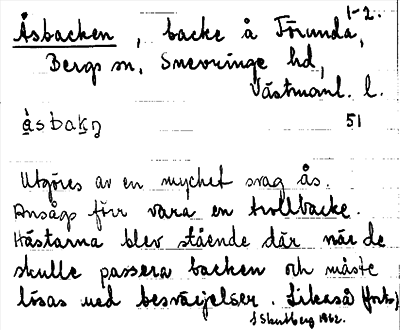 1-2.
Åsbacken, backe å Förunda,
Bergs sn, Snevringe hd,
Västmanl. l.
åsbakn̥ 51
Utgöres av en mycket svag ås.
Ansågs förr vara en trollbacke.
Hästarna blev stående där när de
skulle passera backen och måste
lösas med besvärjelser. Likaså (forts.)
1962.